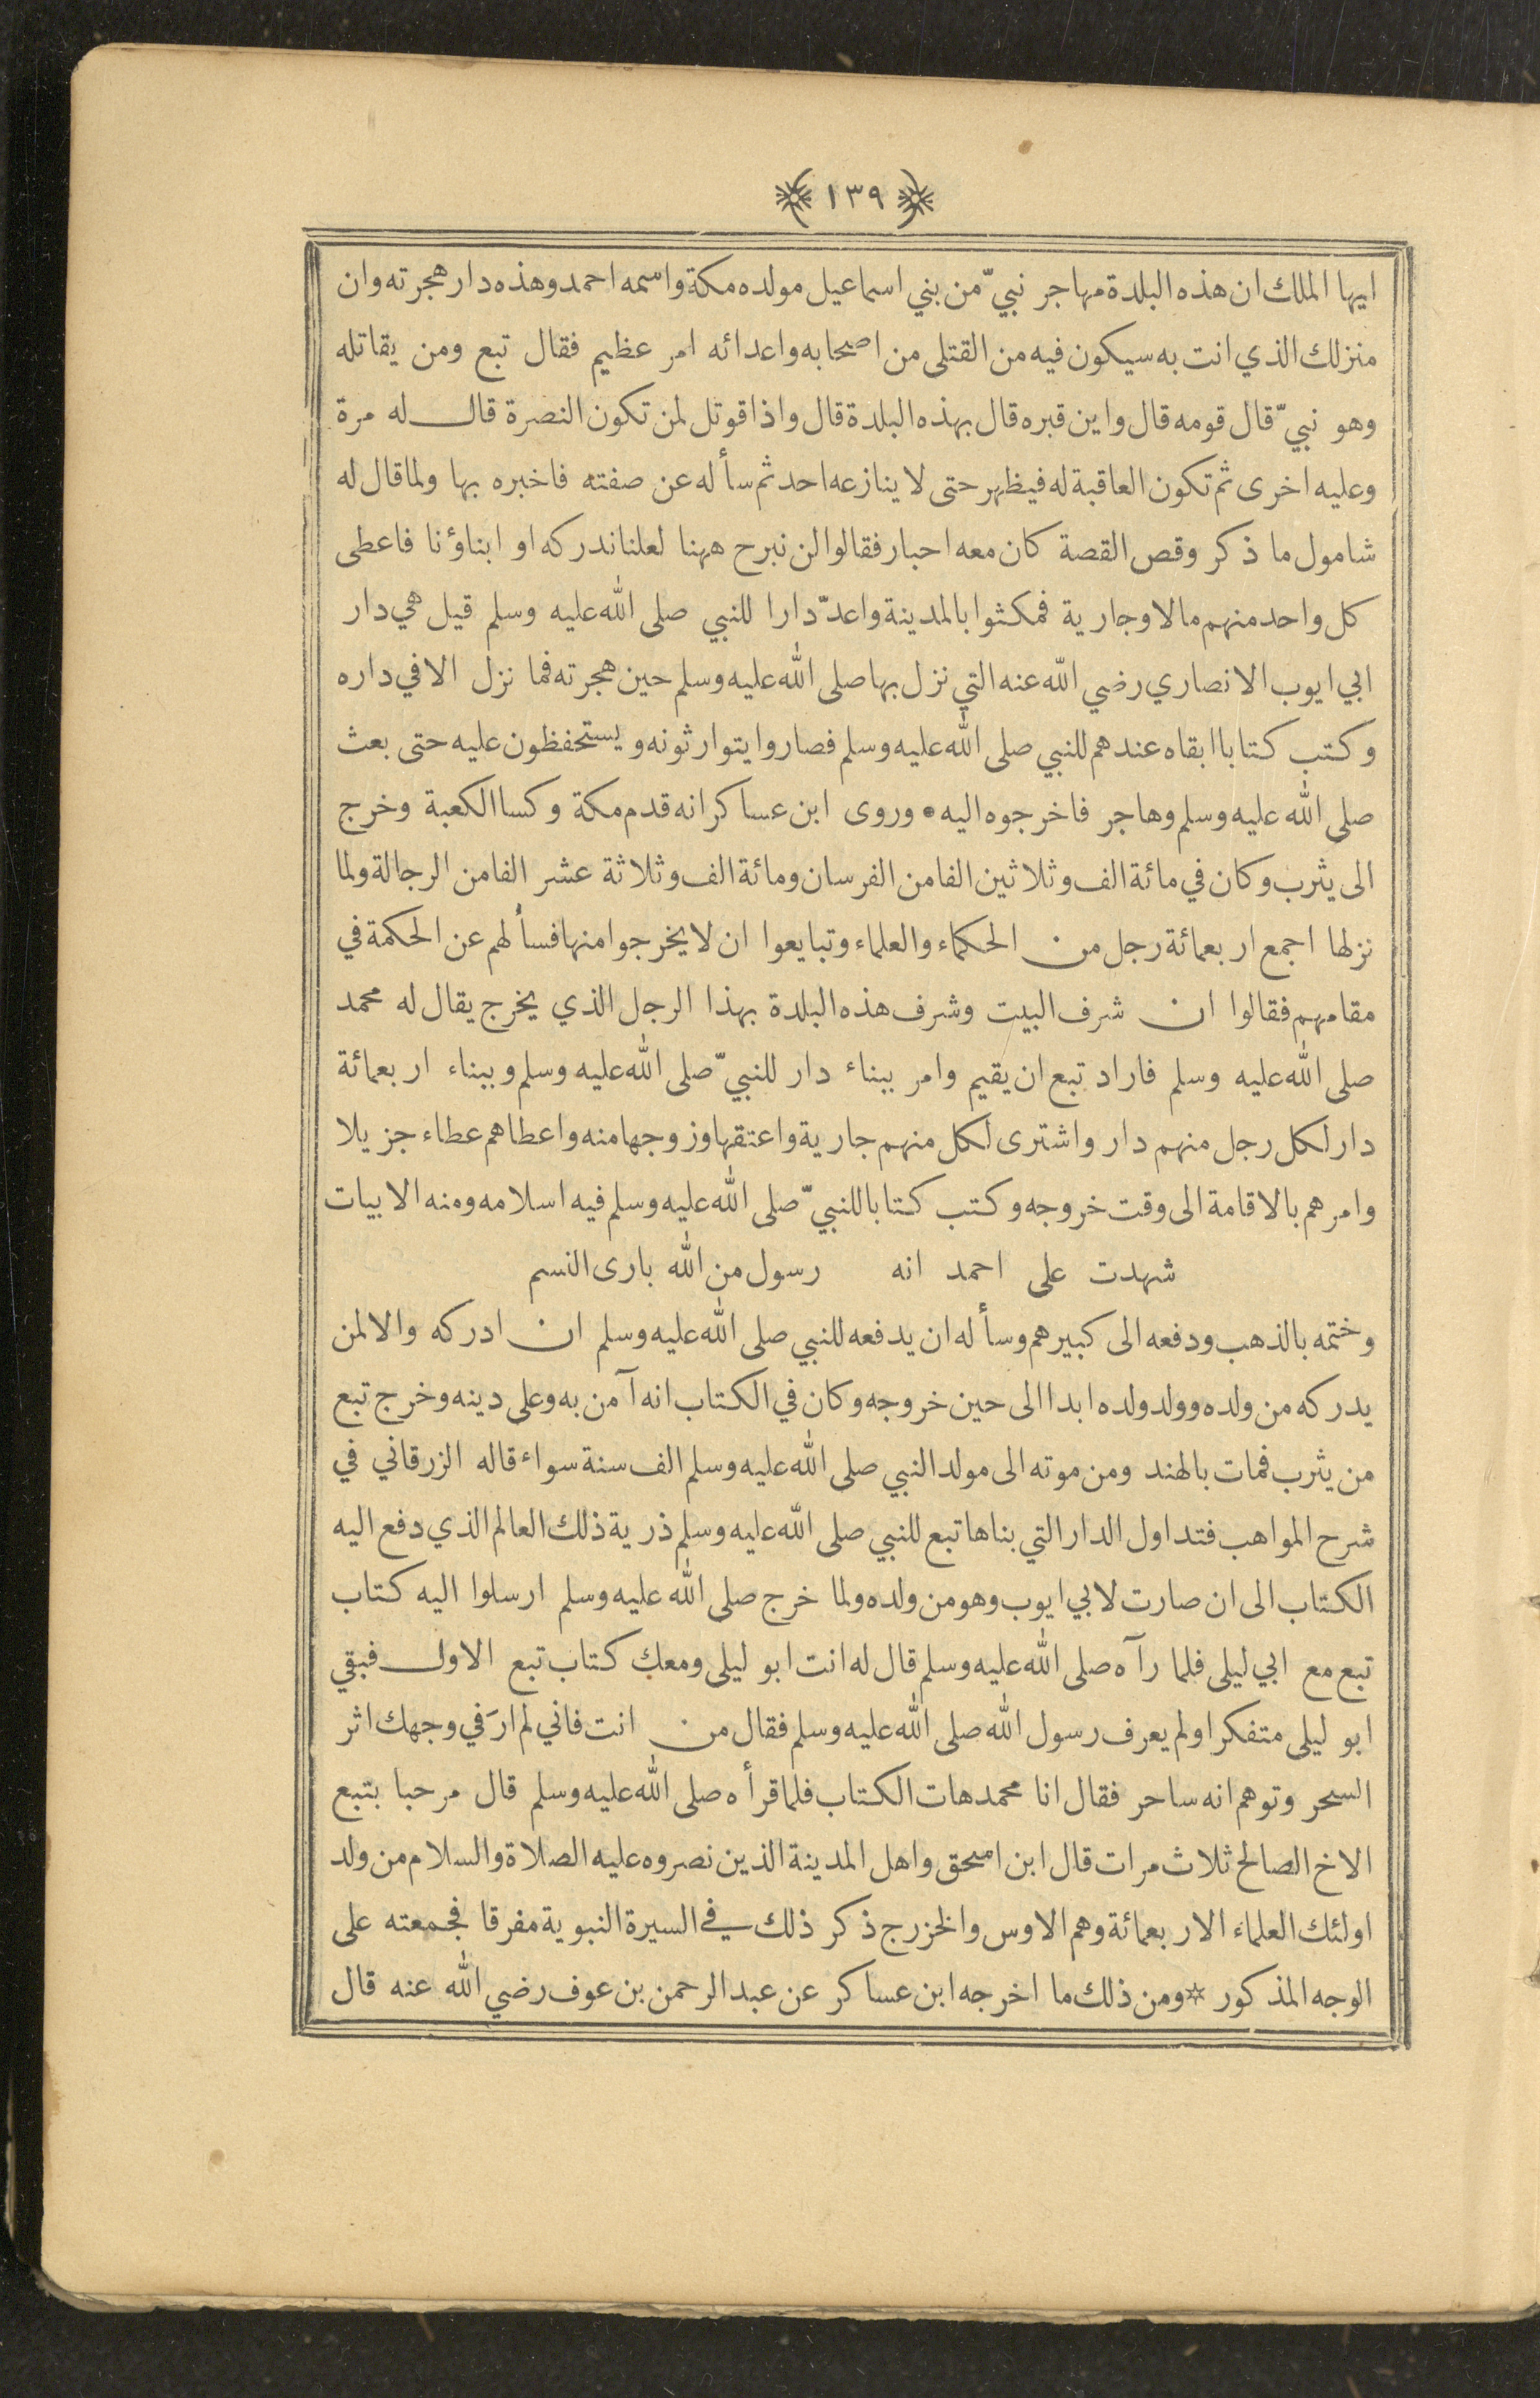 ﴿ ١٣٩ ﴾
ايها الملك ان هذه البلدة مهاجر نبيّ من بني اسماعيل مولده مكة واسمه احمد وهذه دار هجرته وان
منزلك الذي انت به سيكون فيه من القتلى من اصحابه واعدائه امر عظيم فقال تبع ومن يقاتله
وهو نبيّ قال قومه قال واين قبره قال بهذه البلدة قال واذا قوتل لمن تكون النصرة قال له مرة
وعليه اخرى ثم تكون العاقبة له فيظهر حتى لا ينازعه احد ثم سأله عن صفته فاخبره بها ولما قال له
شامول ما ذكر وقص القصة كان معه احبار فقالوا لن نبرح ههنا لعلنا ندركه او ابناؤنا فاعطى
كل واحد منهم مالا وجارية فمكثوا بالمدينة واعدّ دارا للنبي صلى الله عليه وسلم قيل هي دار
ابي ايوب الانصاري رضي الله عنه التي نزل بها صلى الله عليه وسلم حين هجرته فما نزل الا في داره
وكتب كتابا ابقاه عندهم للنبي صلى الله عليه وسلم فصاروا يتوارثونه ويستحفظون عليه حتى بعث
صلى الله عليه وسلم وهاجر فاخرجوه اليه • وروى ابن عساكر انه قدم مكة وكسا الكعبة وخرج
الى يثرب وكان في مائة الف وثلاثين الفا من الفرسان ومائة الف وثلاثة عشر الفا من الرجالة ولما
نزلها اجمع اربعمائة رجل من الحكماء والعلماء وتبايعوا ان لا يخرجوا منها فسألهم عن الحكمة في
مقامهم فقالوا ان شرف البيت وشرف هذه البلدة بهذا الرجل الذي يخرج يقال له محمد
صلى الله عليه وسلم فاراد تبع ان يقيم وامر ببناء دار للنبيّ صلى الله عليه وسلم وببناء اربعمائة
دار لكل رجل منهم دار واشترى لكل منهم جارية واعتقها وزوجها منه واعطاهم عطاء جزيلا
وامرهم بالاقامة الى وقت خروجه وكتب كتابا للنبيّ صلى الله عليه وسلم فيه اسلامه ومنه الابيات
شهدت على احمد انه رسول من الله بارى النسم
وختمه بالذهب ودفعه الى كبيرهم وسأله ان يدفعه للنبي صلى الله عليه وسلم ان ادركه والا لمن
يدركه من ولده وولد ولده ابدا الى حين خروجه وكان في الكتاب انه آمن به وعلى دينه وخرج تبع
من يثرب فمات بالهند ومن موته الى مولد النبي صلى الله عليه وسلم الف سنة سواء قاله الزرقاني في
شرح المواهب فتداول الدار التي بناها تبع للنبي صلى الله عليه وسلم ذرية ذلك العالم الذي دفع اليه
الكتاب الى ان صارت لابي ايوب وهو من ولده ولما خرج صلى الله عليه وسلم ارسلوا اليه كتاب
تبع مع ابي ليلى فلما رآه صلى الله عليه وسلم قال له انت ابو ليلى ومعك كتاب تبع الاول فبقي
ابو ليلى متفكرا ولم يعرف رسول الله صلى الله عليه وسلم فقال من انت فاني لم ارَ في وجهك اثر
السحر وتوهم انه ساحر فقال انا محمد هات الكتاب فلما قرأه صلى الله عليه وسلم قال مرحبا بتبع
الاخ الصالح ثلاث مرات قال ابن اسحق واهل المدينة الذين نصروه عليه الصلاة والسلام من ولد
اولئك العلماء الاربعمائة وهم الاوس والخزرج ذكر ذلك في السيرة النبوية مفرقا فجمعته على
الوجه المذكور ☆ ومن ذلك ما اخرجه ابن عساكر عن عبد الرحمن بن عوف رضي الله عنه قال